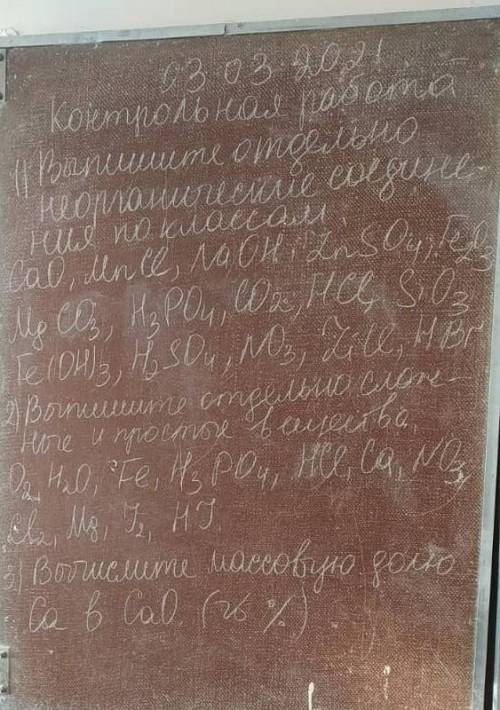 03 03 2021.
Контрольная работа
1) Выпишите отдельно
неорганические соедине-
ния по классам
CaO, MnCl, NaOH, ZnSO4, Fe2O3
MgCO3, H3PO4, CO2, HCl, SiO3
Fe(OH)3, H2SO4, NO3, ZiCl, HBr
2) Выпишите отдельно слож-
ные и простые вещества.
O2, H2O, Fe, H3PO4, HCl, Ca, NO3,
Mg, I2, HI.
3) Вычислите массовую долю
Ca в CaO. (в %)